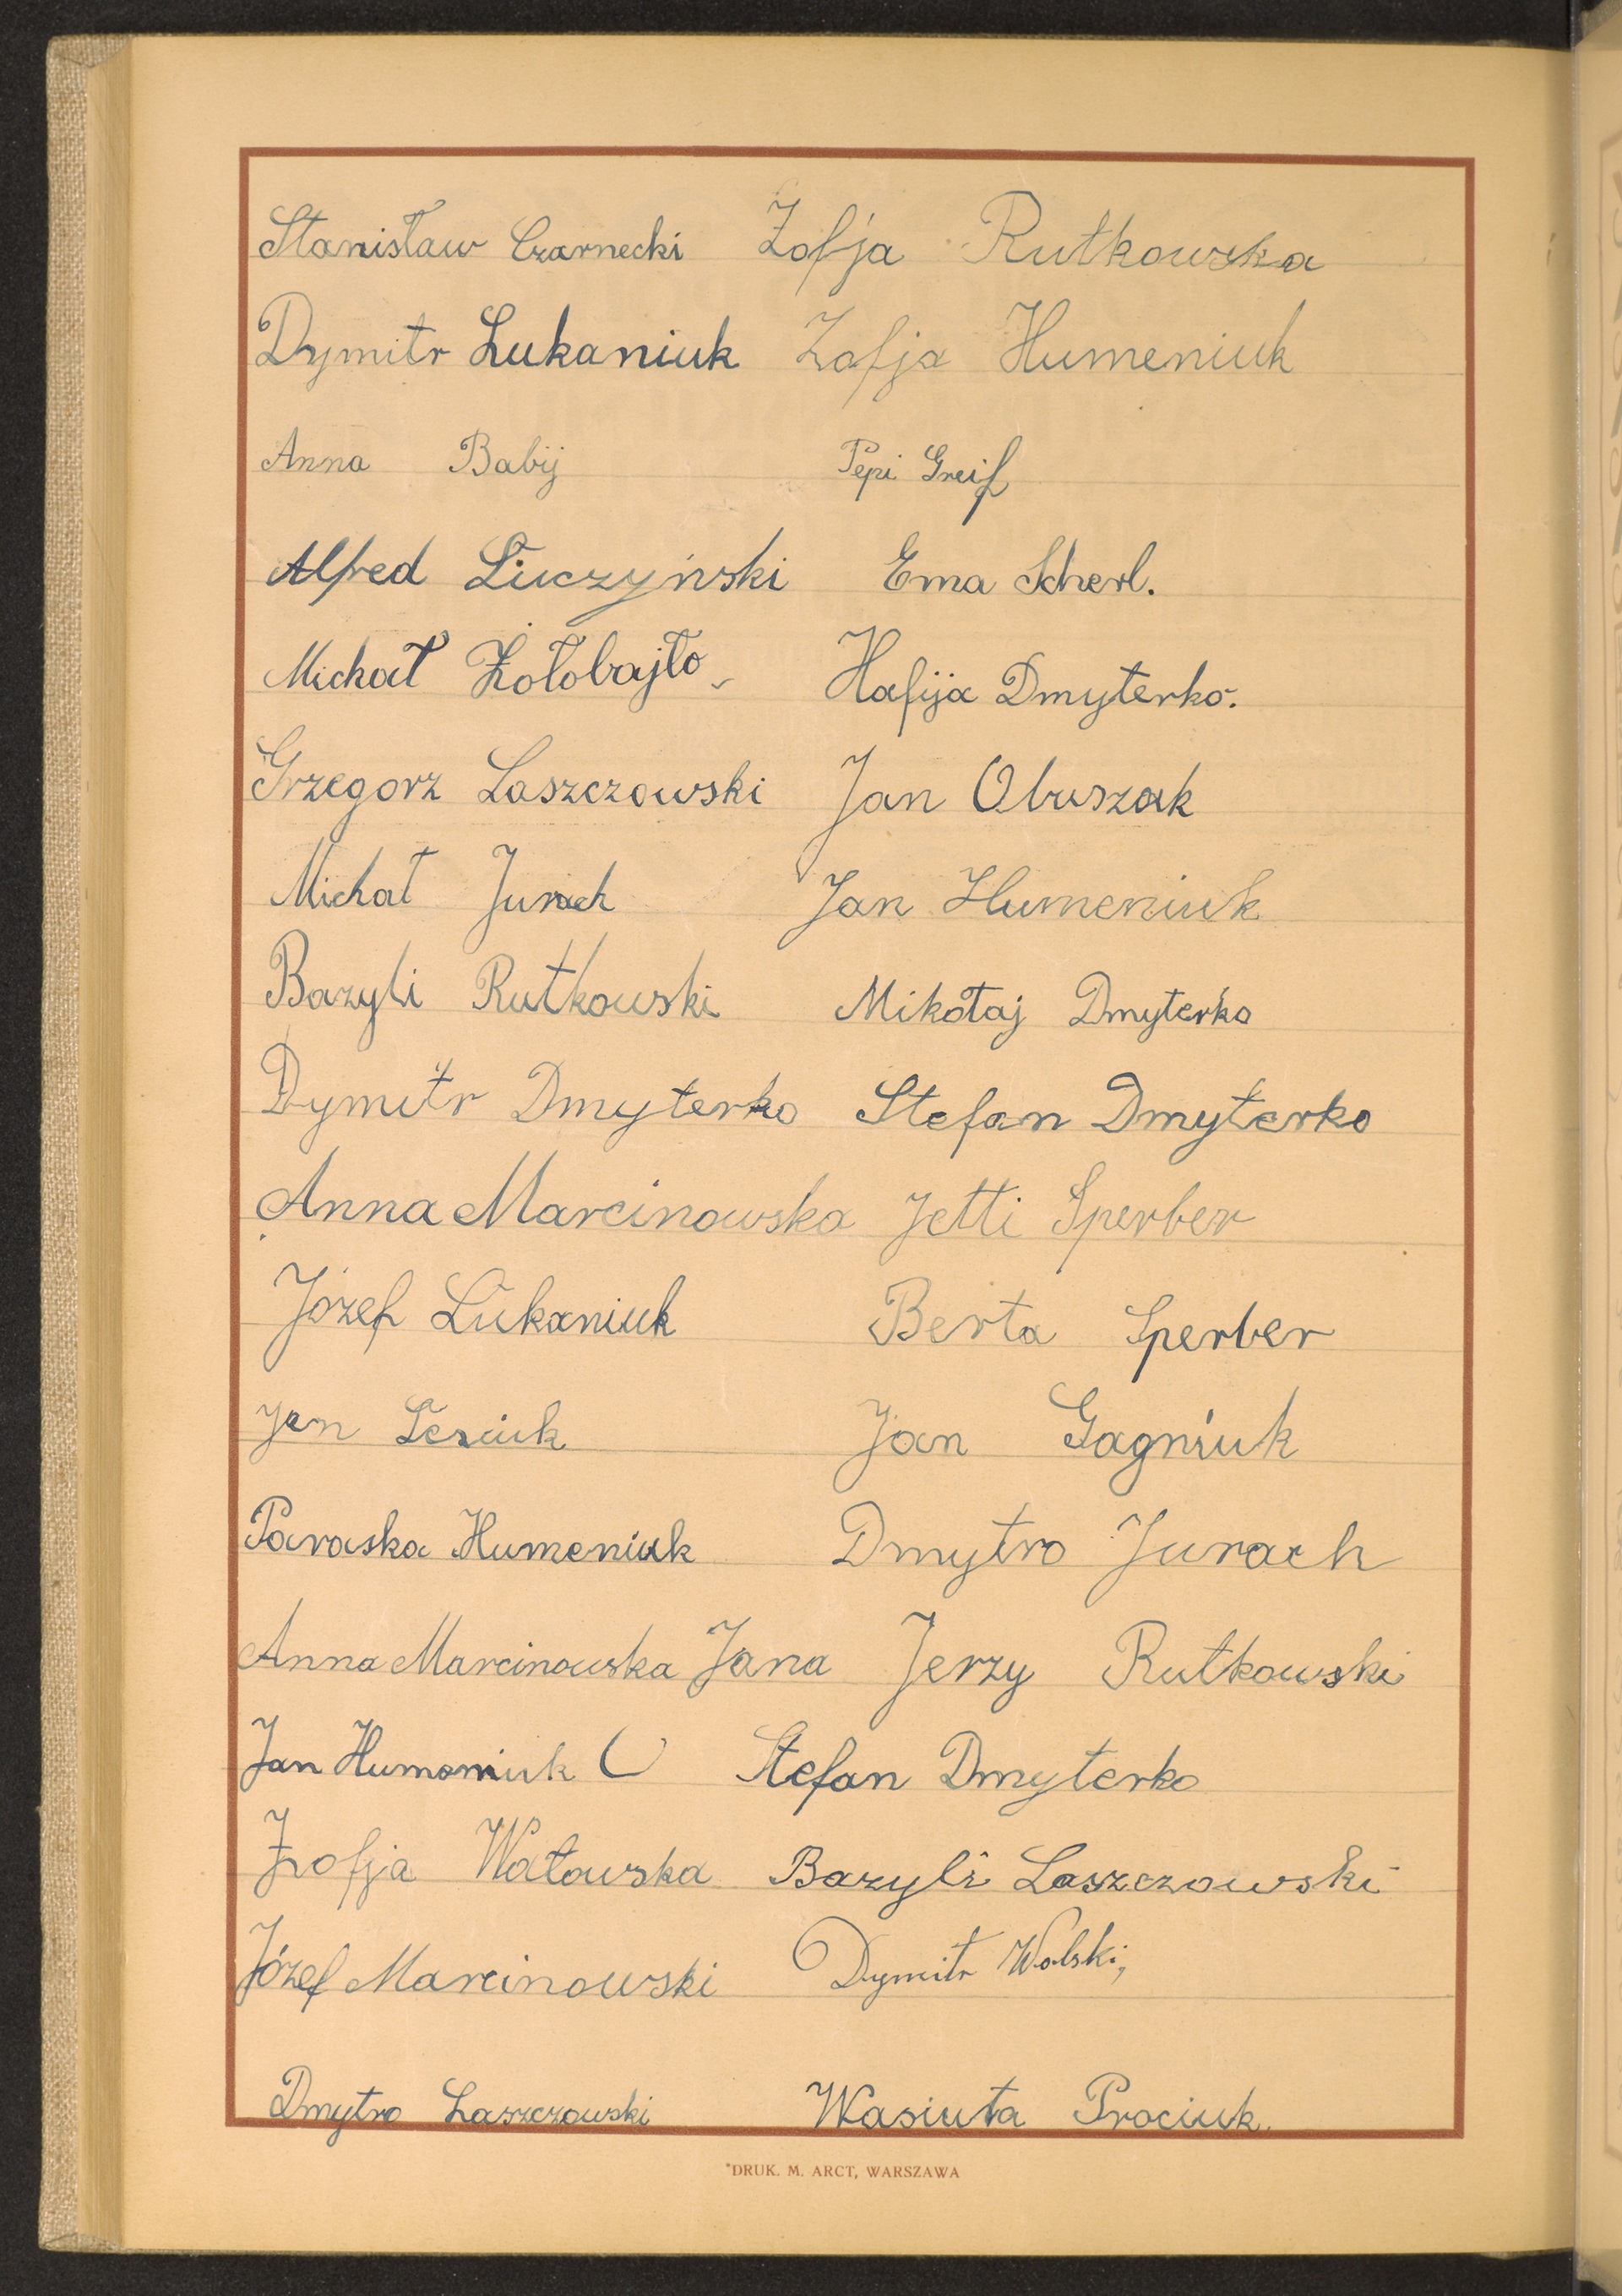 Stanisław Czarnecki Zofja Rutkowska
Dymitr Łukaniuk Zofja Humeniuk
Anna Babij Pepi Greif
Alfred Łuczyński Ema Scherl.
Michał Żołobajło Hafija Dmyterko.
Grzegorz Laszczowski Jan Obuszak
Michał Jurach Jan Humeniuk
Bazyli Rutkowski Mikołaj Dmyterko
Dymitr Dmyterko Stefan Dmyterko
Anna Marcinowska Jetti Sperber
Józef Łukaniuk Berta Sperber
Jan Łesiuk Jan Gagniuk
Paraska Humeniuk Dmytro Jurach
Anna Marcinowska Jana Jerzy Rutkowski
Jan Humeniuk Stefan Dmyterko
Zofja Watowska Bazyli Laszczowski
Józef Marcinowski Dymitr Wolski,
Dmytro Laszczowski Wasiuta Prociuk.
DRUK. M. ARCT, WARSZAWA